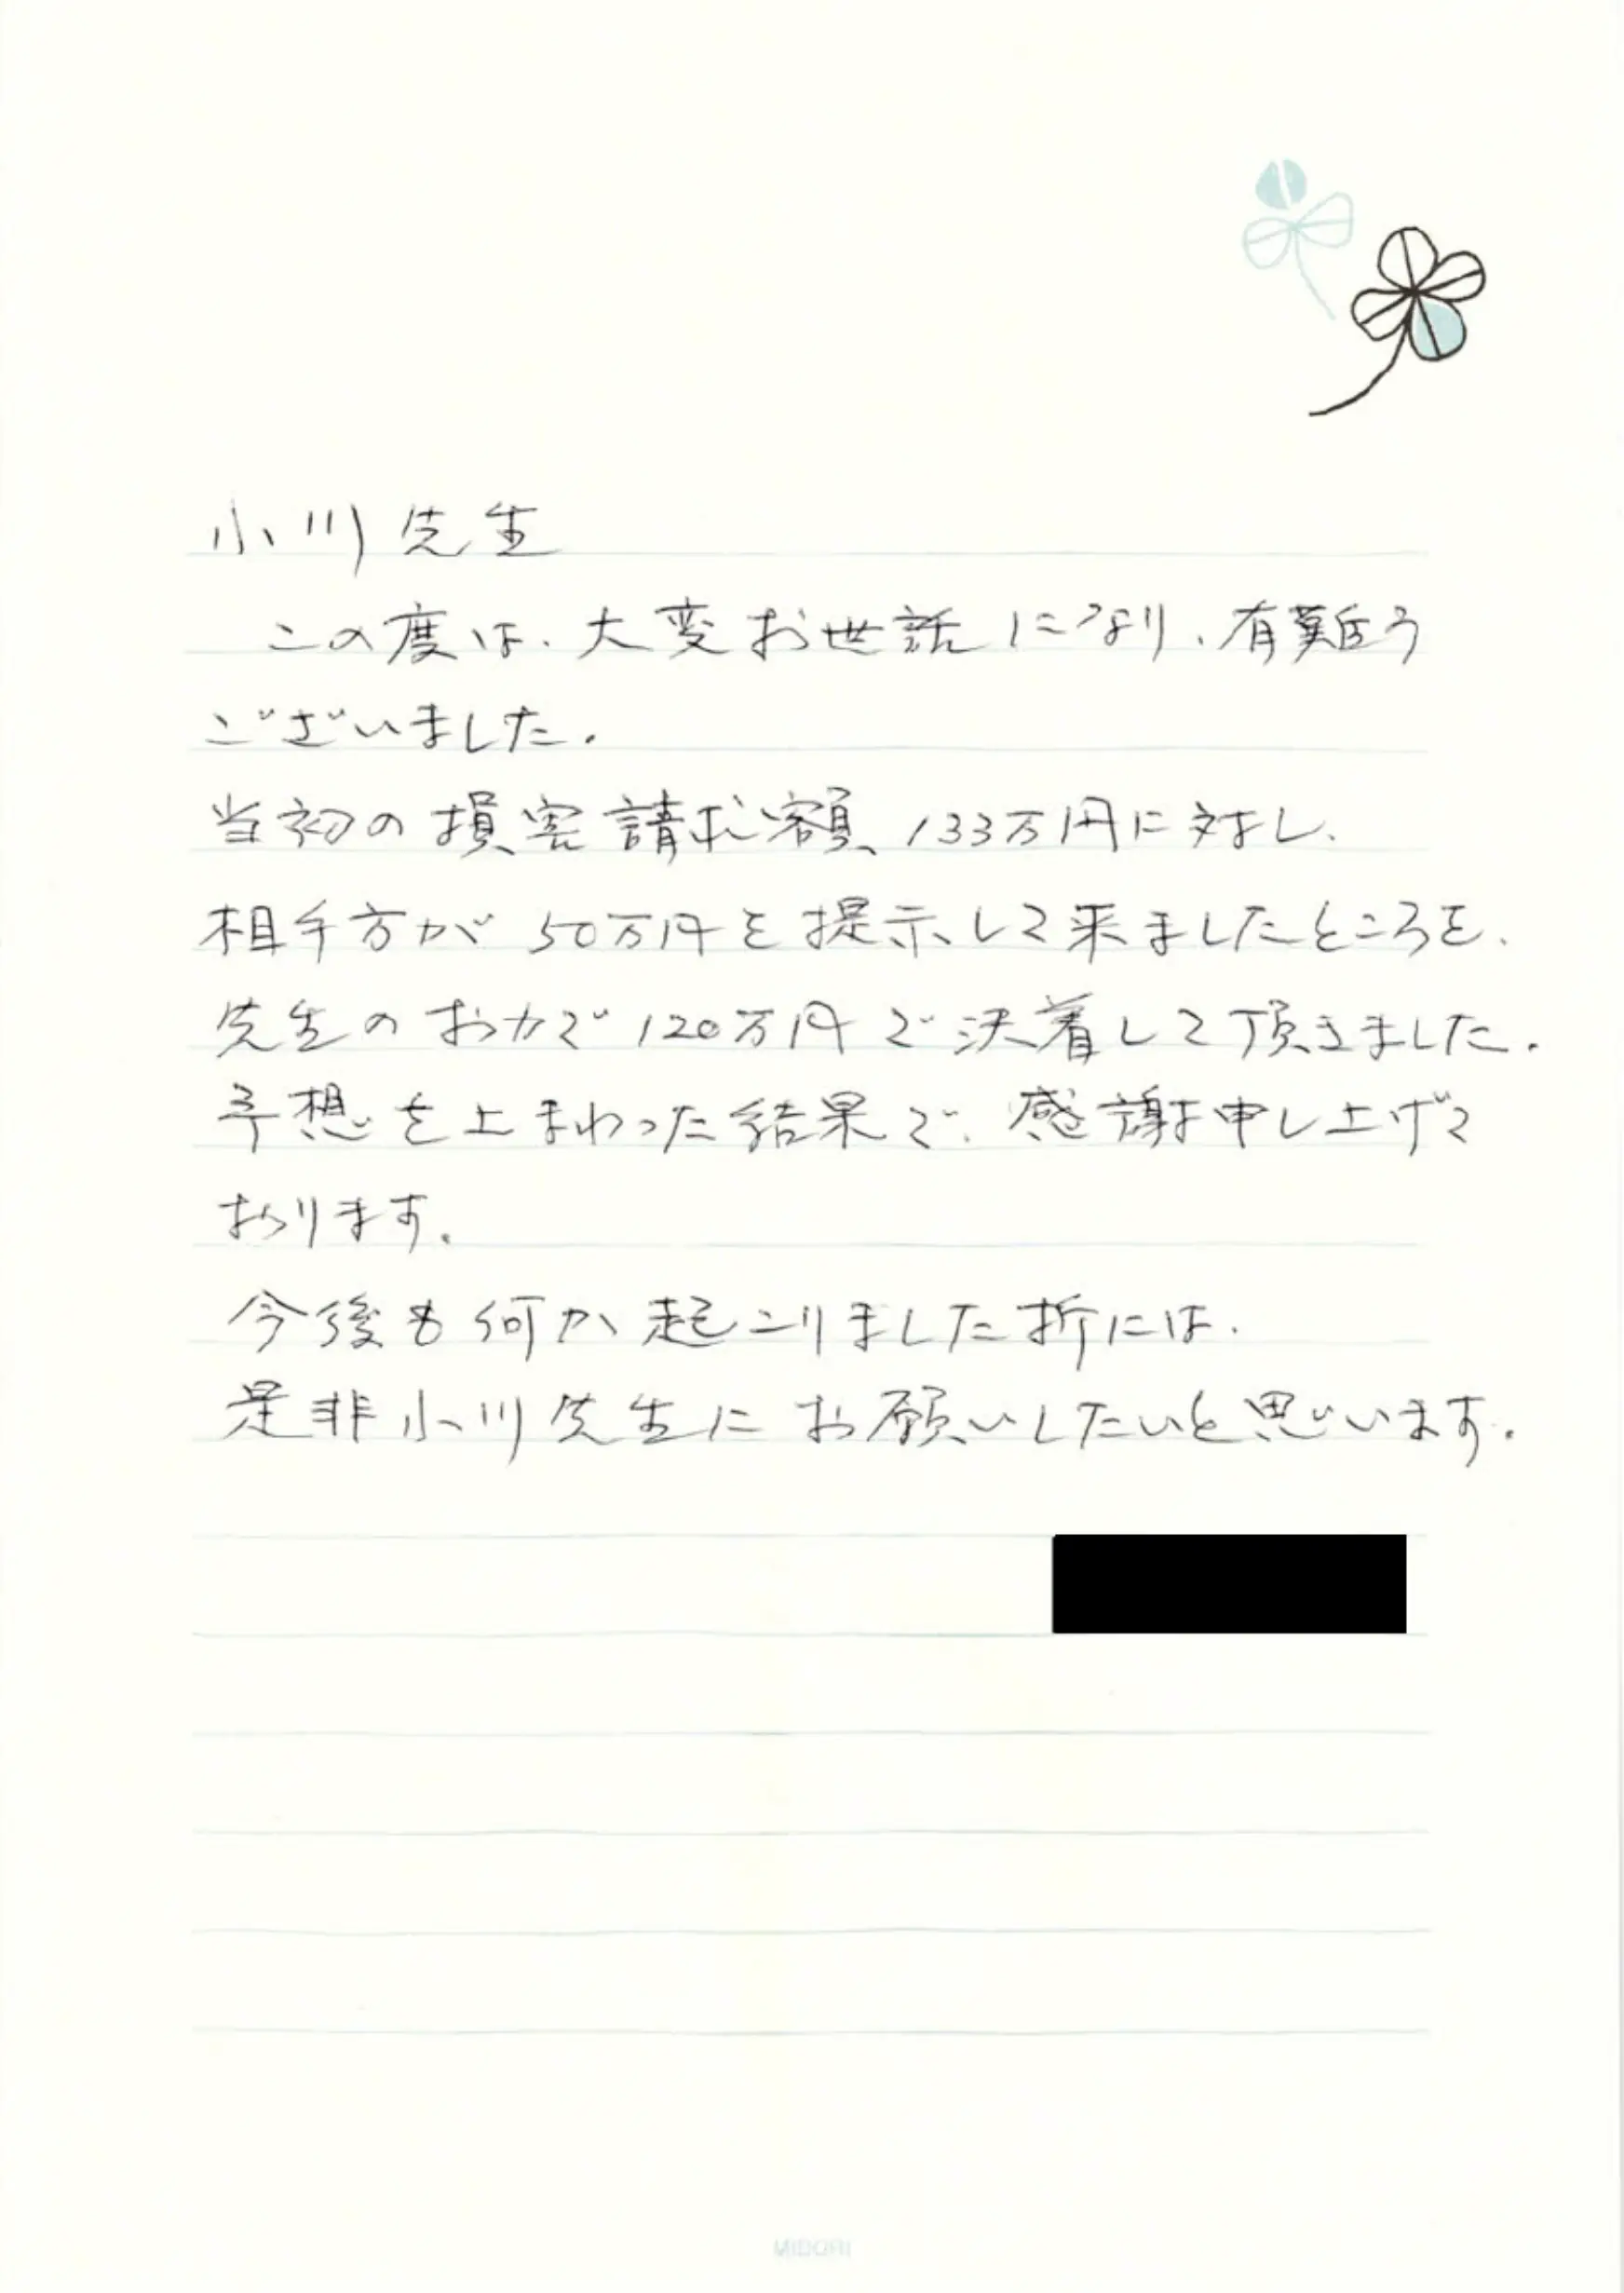 小川先生
この度は、大変お世話になり、有難う
ございました。
当初の損害請求額、133万円に対し、
相手方が50万円を提示して来ましたところを、
先生のお力で120万円で決着して頂きました。
予想を上まわった結果で、感謝申し上げて
おります。
今後も何か起こりました折には、
是非小川先生にお願いしたいと思います。
MIDORI